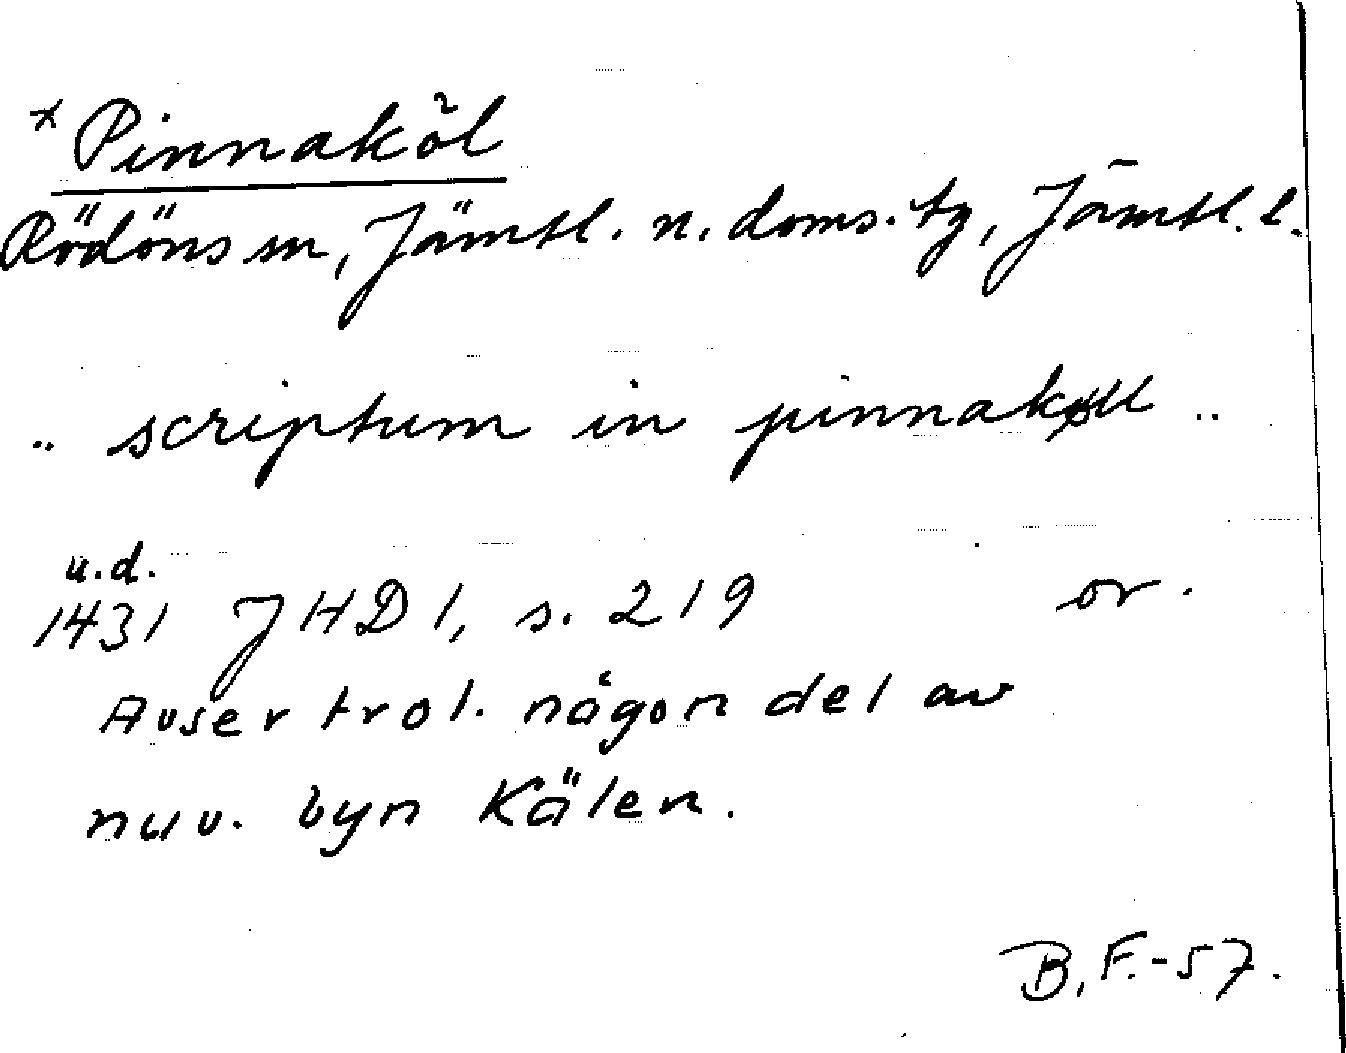 * Pinnaköl
Rödöns sn, Jämtl. n. doms. tg, Jämtl. l.
.. scriptum in pinnakøll ..
u.d.
1431 JHD 1, s. 219 or.
Avser trol. någon del av
nuv. byn Kälen.
B.F.-57.